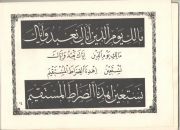 مالك يوم الدين إياك نعبد وإياك
مالك يوم الدين إياك نعبد وإياك
نستعين اهدنا الصراط المستقيم
نستعين اهدنا الصراط المستقيم